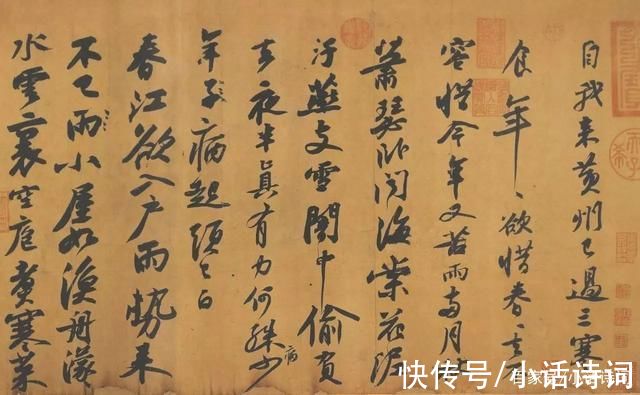 自我來黃州已過三寒
食年〻欲惜春〻去不
容惜今年又苦雨兩月
蕭瑟臥聞海棠花泥
汙燕支雪闇中偷負
去夜半真有力何殊少
病
年子病起頭已白
春江欲入戶雨勢來
不已雨小屋如漁舟濛〻
水雲裏空庖煮寒菜
快传号/小话诗词